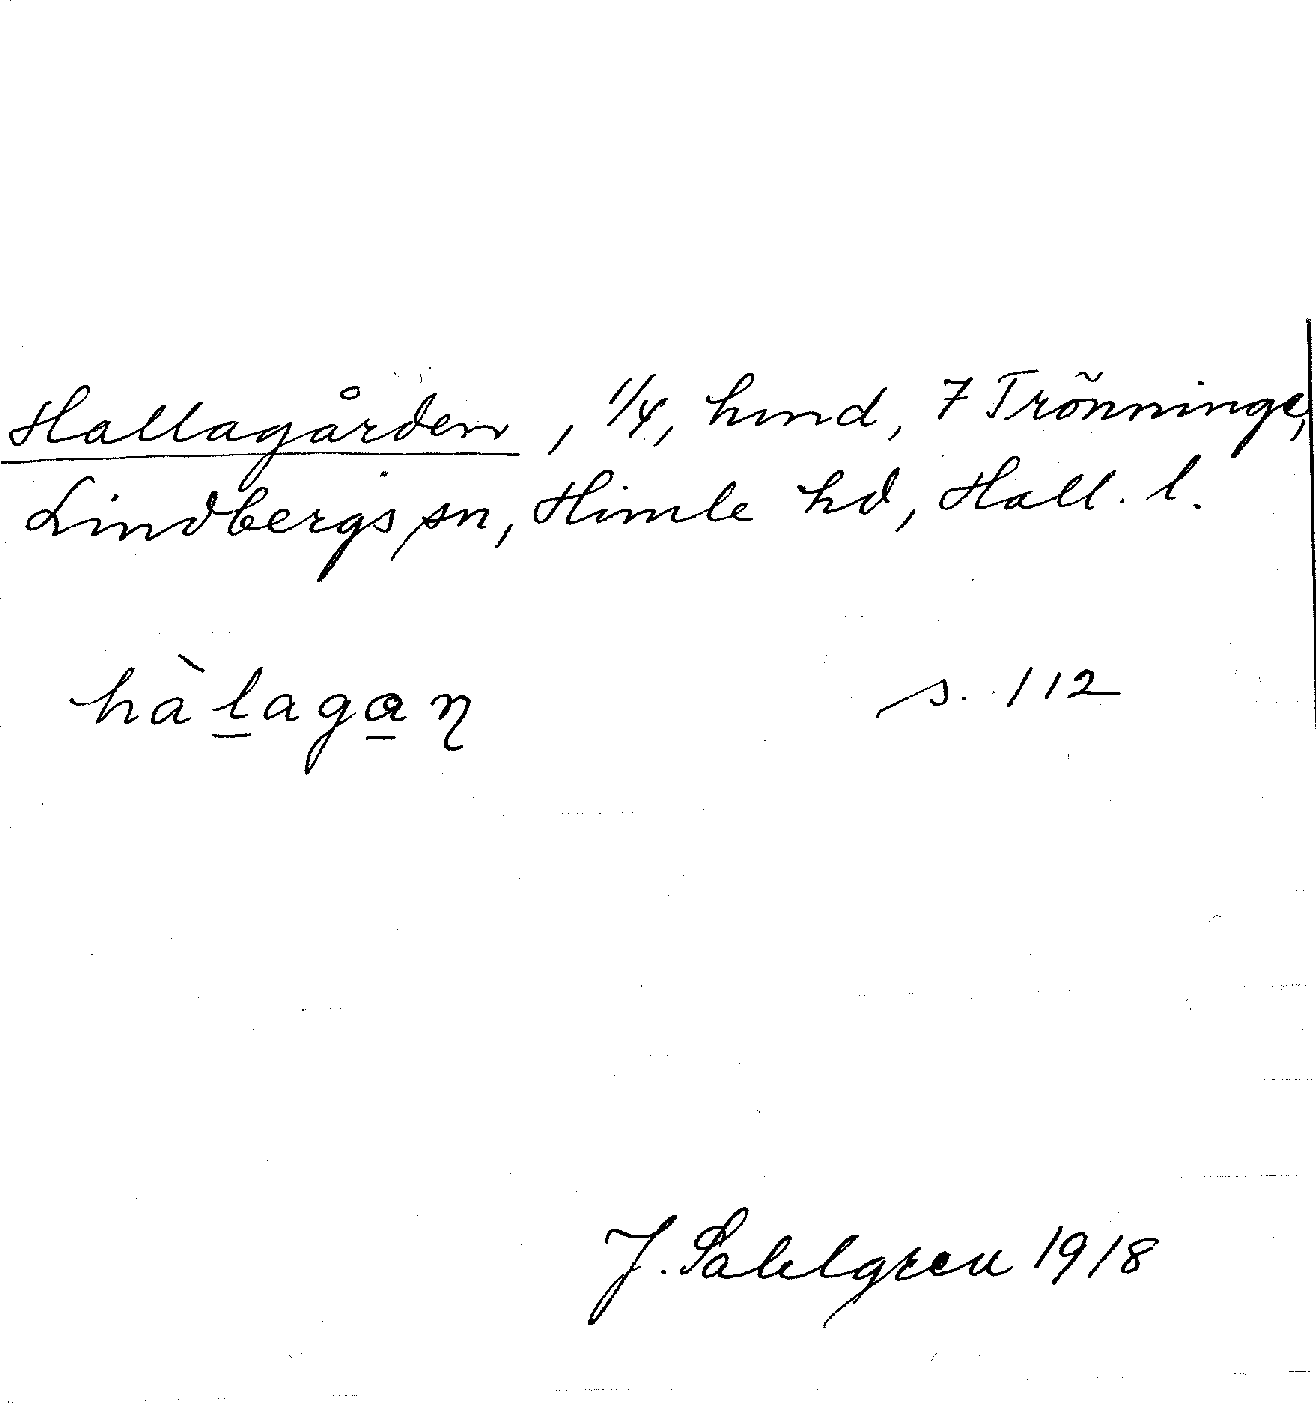 Hallagården, 1/4, hmd, 7 Trönninge,
Lindbergs sn, Himle hd, Hall. l.
hàl̲aga̲ŋ s. 112
J. Sahlgren 1918